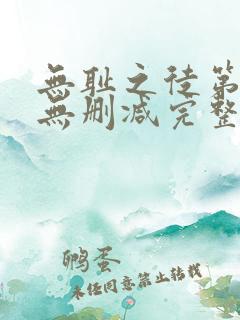 無耻之徒第
無删减完整
鹏蛋
未经同意禁止转载